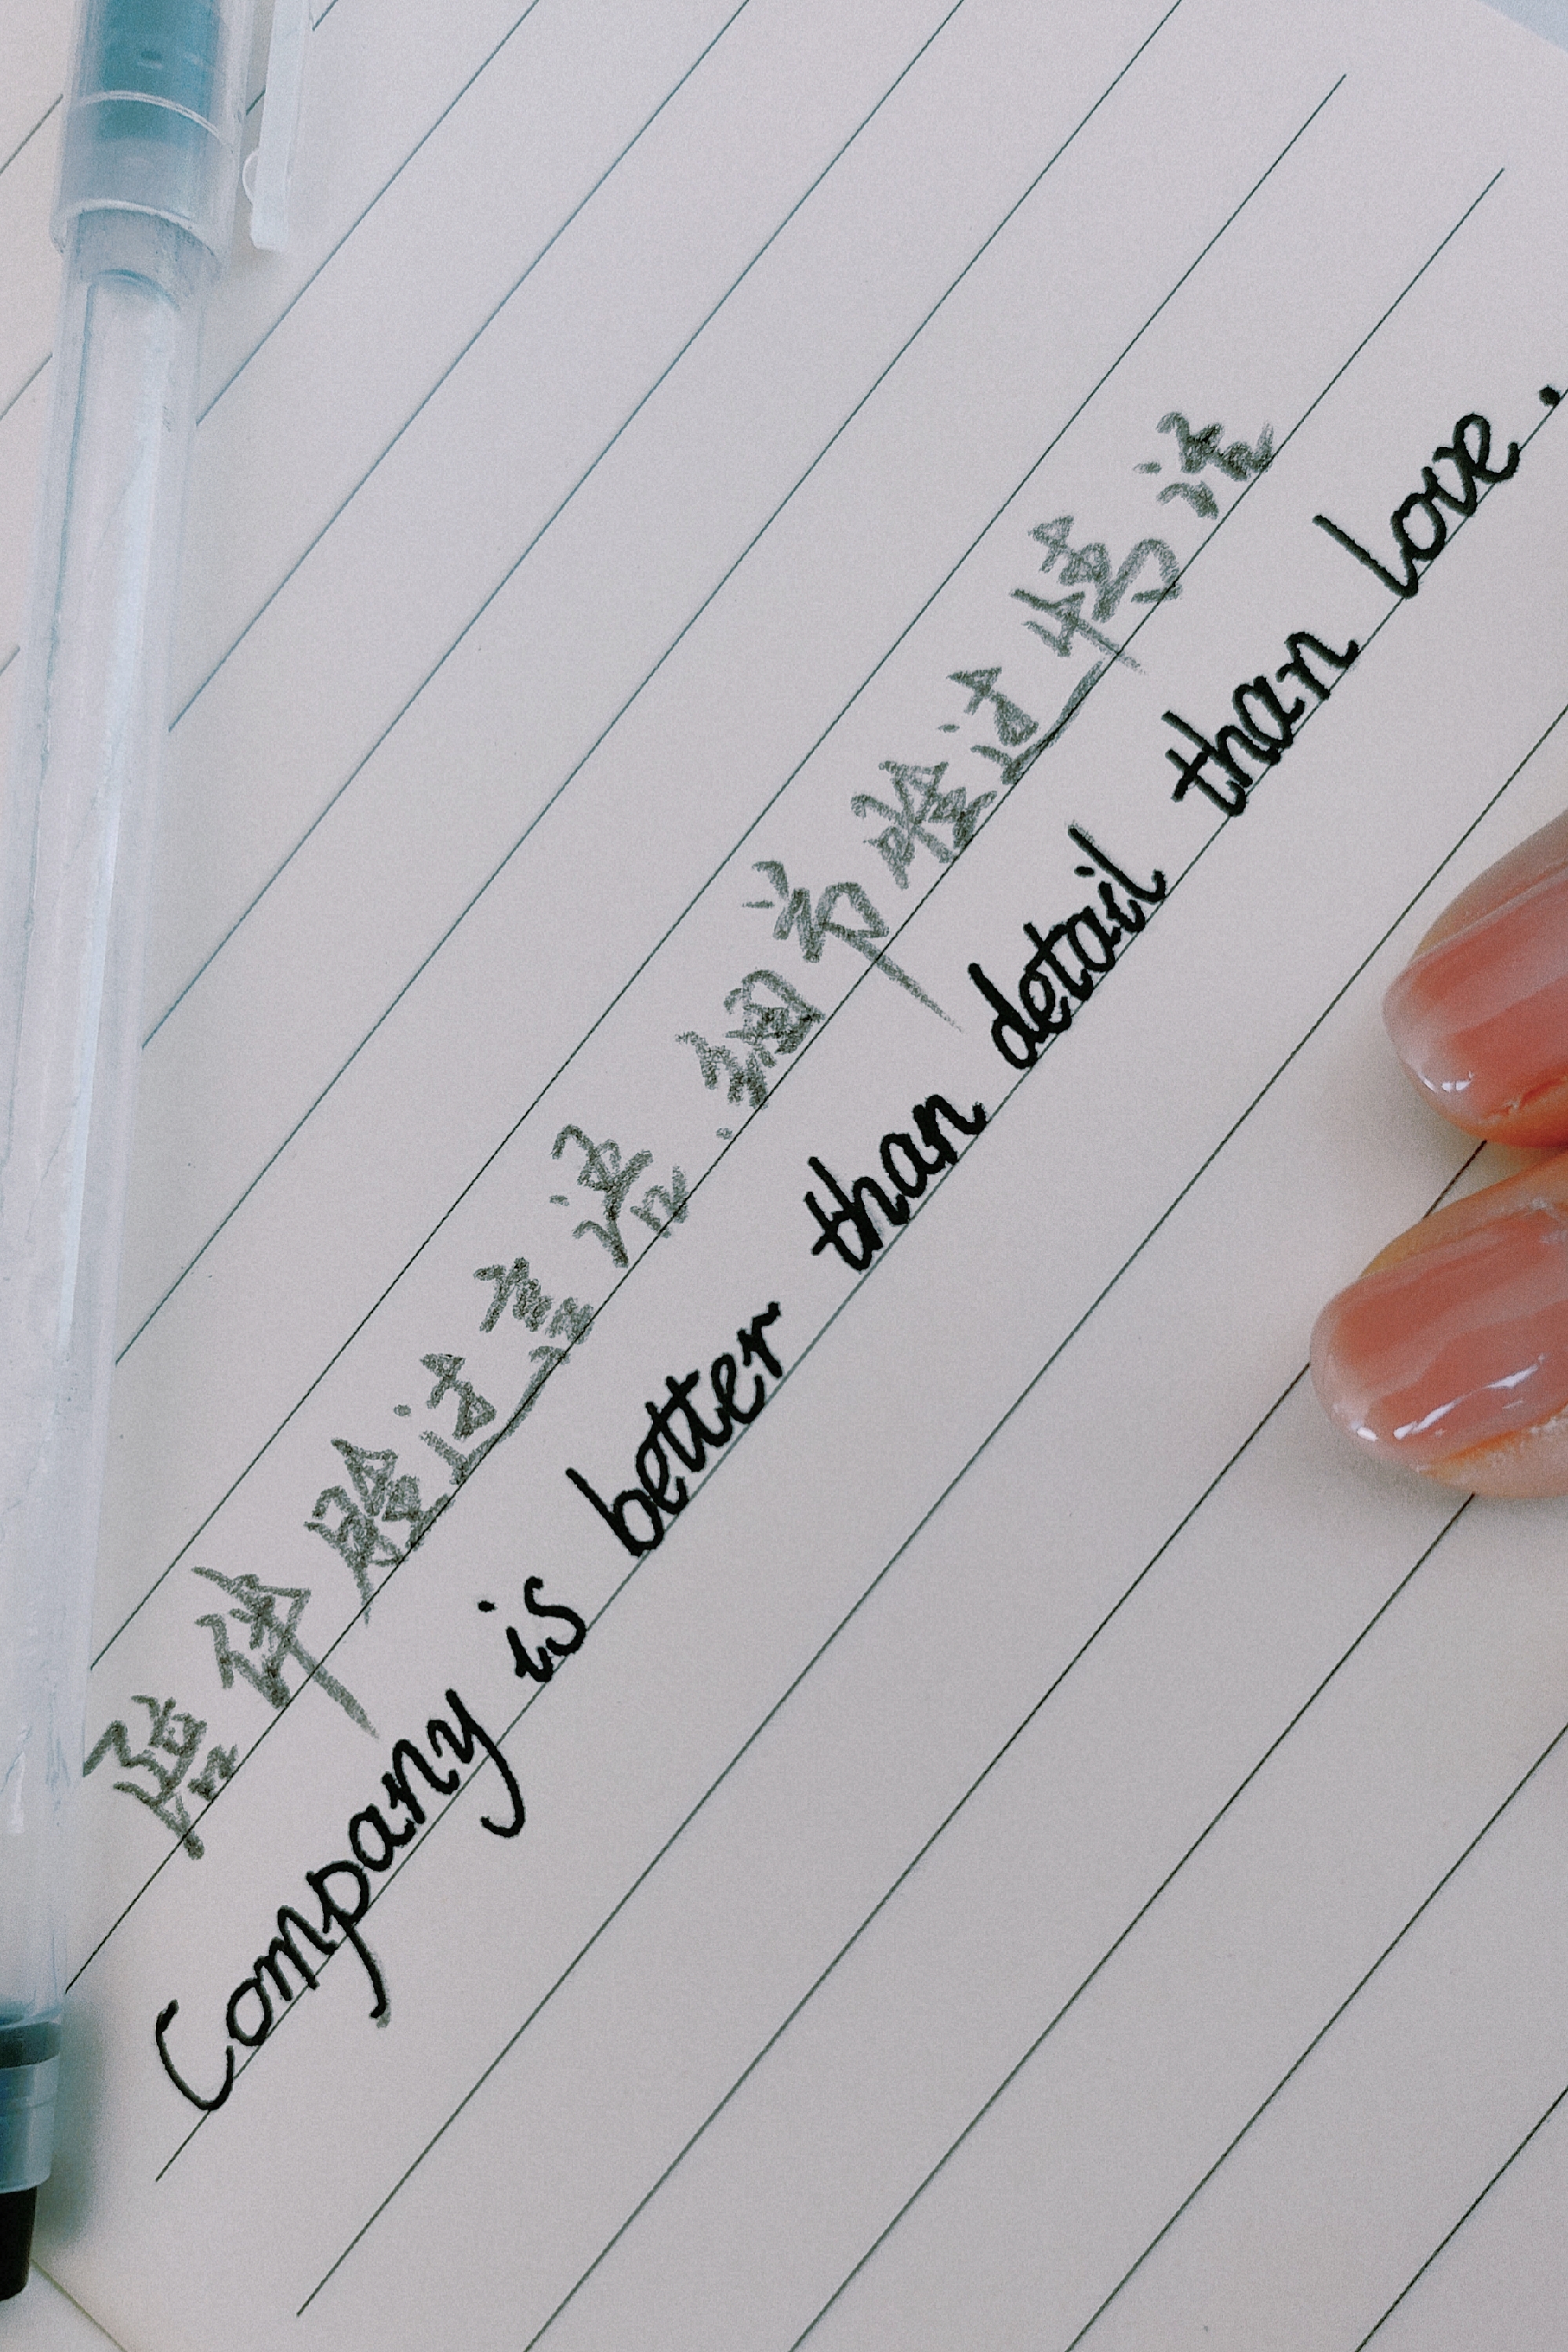 陪伴勝过言语.細节勝过情话
Company is better than detail than love.